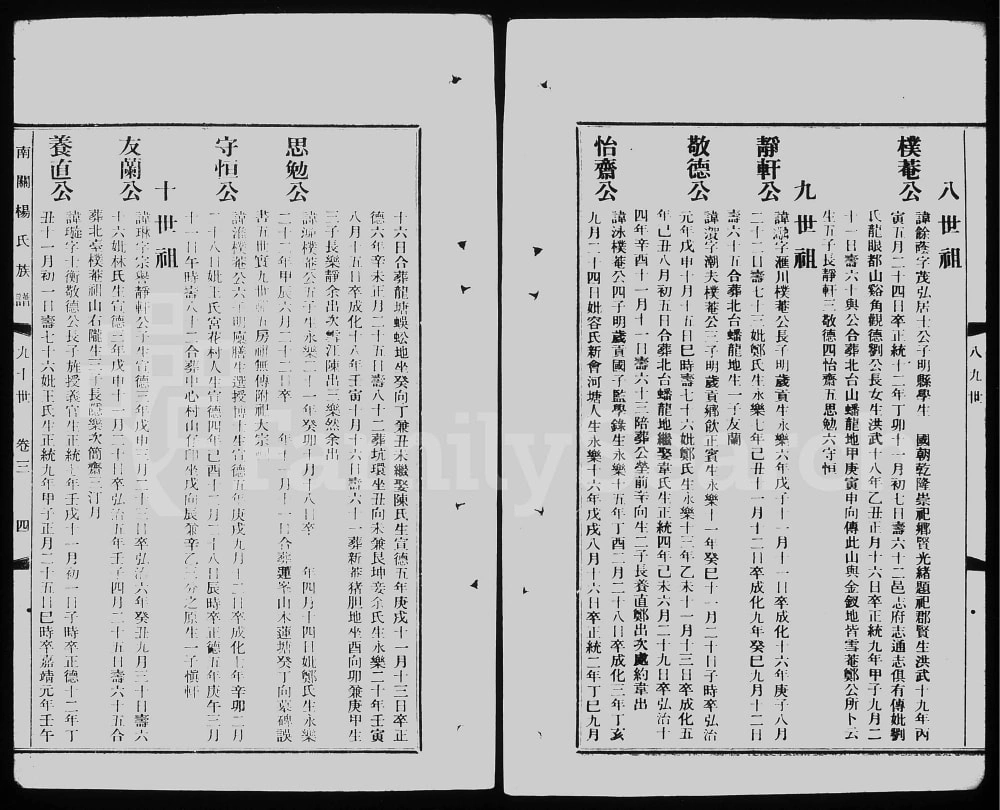 八世祖
樸菴公
諱餘蔭字茂弘居士公子明縣學生　國朝乾隆崇祀鄉賢光緒題祀郡賢生洪武十九年丙
寅五月二十四日卒正統十二年丁卯十一月初七日壽六十二邑志府志通志俱有傳妣劉
氏龍眼都山谿角觀德劉公長女生洪武十八年乙丑正月十六日卒正統九年甲子九月二
十一日壽六十與公合葬北台山蟠龍地甲庚寅申向傳此山與金釵地皆雪菴鄭公所卜云
生五子長靜軒三敬德四怡齋五思勉六守恒
九世祖
靜軒公
字滙川樸菴公長子明歲貢生永樂六年戊子十一月十一日卒成化十六年庚子八月
二十二日壽七十三妣鄭氏生永樂七年己丑十一月十二日卒成化九年癸巳九月十二日
壽六十五合葬北台蟠龍地生一子友蘭
敬德公
諱賀字潮夫樸菴公三子明歲貢鄉飲正賓生永樂十一年癸巳十一月二十日子時卒弘治
元年戊申十月十五日巳時壽七十六妣鄭氏生永樂十三年乙未十一月十三日卒成化五
年己丑八月初五日合葬北台蟠龍地繼娶韋氏生正統四年己未六月二十九日卒弘治十
四年辛酉十一月十一日壽六十三陪葬公塋前辛向生二子長養直鄭出次處約韋出
怡齋公
諱泳樸菴公四子明歲貢國子監學錄生永樂十五年丁酉二月二十八日卒成化三年丁亥
九月二十四日妣容氏新會河塘人生永樂十六年戊戌八月十六日卒正統二年丁巳九月
八九世
十六日合葬龍塘蜈蚣地坐癸向丁兼丑未繼娶陳氏生宣德五年庚戌十一月十三日卒正
德六年辛未正月二十五日壽八十二葬坑環坐丑向未兼艮坤妾余氏生永樂二十年壬寅
八月十五日卒成化十八年壬寅十月十六日壽六十一葬新菴猪胆地坐酉向卯兼庚甲生
三子長樂靜余出次新江陳出三樂然余出
思勉公
樸菴公五子生永樂二十一年癸卯十月十八日卒　年四月十四日妣鄭氏生永樂
二十二年甲辰六月二十二日卒　年十一月十一日合葬蓮峯山木蓮塘癸丁向墓碑誤
書五世實九世五房祖無傳附祀大宗
守恒公
樸菴公六子明廩膳生選授博士生宣德五年庚戌九月十二日卒成化七年辛卯二月
二十八日妣王氏宮花村人生宣德四年己酉十二月二十八日辰時卒正德五年庚午三月
十一日午時壽八十二合葬中心村山仔坐戌向辰兼辛乙之原生一子愼軒
十世祖
友蘭公
諱琳字宗靜軒公子生宣德三年戊申三月二十日卒弘治六年癸丑九月三十日壽六
十六妣林氏生宣德三年戊申十一月二十日卒弘治五年壬子四月二十五日壽六十五合
葬北臺樸菴祖山右隴生三子長隱樂次簡齋三汀月
養直公
字士衡敬德公長子旌授義官生正統七年壬戌十一月初一日子時卒正德十二年丁
丑十一月初一日壽七十六妣王氏生正統九年甲子正月二十五日巳時卒嘉靖元年壬午
南關楊氏族譜
九十世
卷三
四